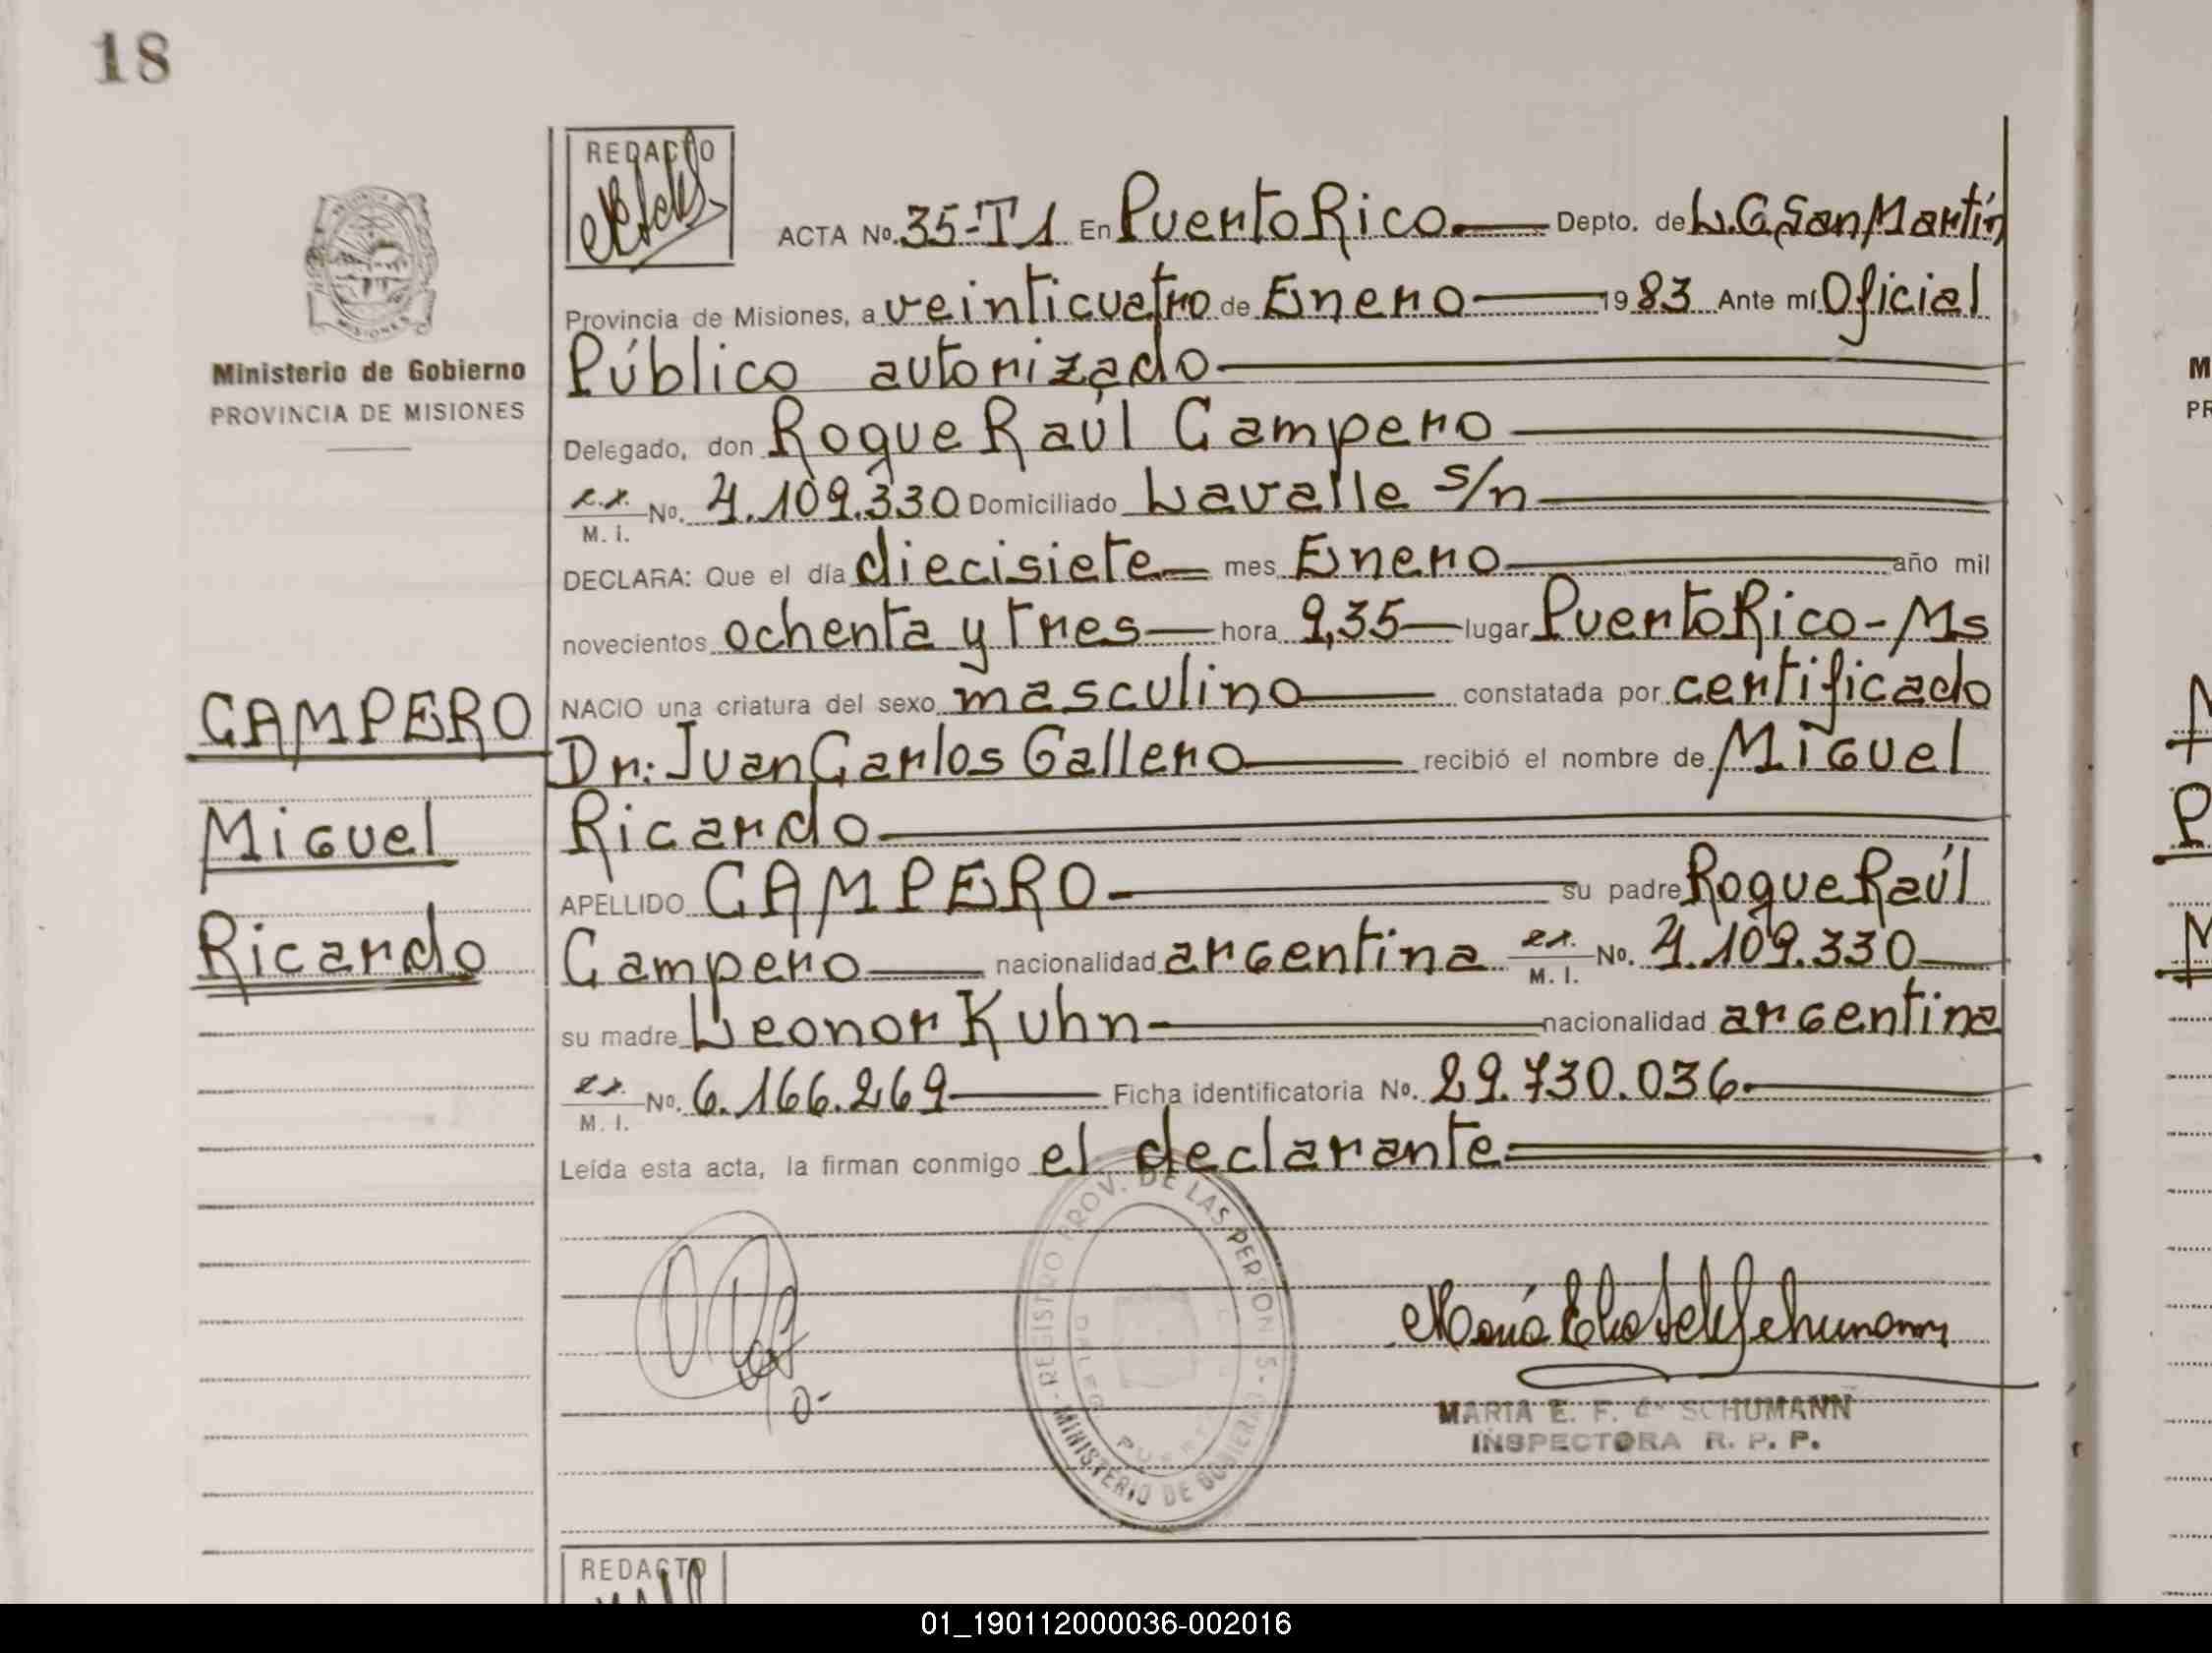 18
REDACTO
ACTA No. 35-T1 En Puerto Rico Depto. de L.G. San Martín
Provincia de Misiones, a veinticuatro de Enero 1983 Ante mí Oficial
Público autorizado
Delegado, don Roque Raúl Campero
M. I. No. 7.109.330 Domiciliado Lavalle s/n
DECLARA: Que el día diecisiete mes Enero año mil
novecientos ochenta y tres hora 9,35 lugar Puerto Rico-Ms
NACIO una criatura del sexo masculino constatada por certificado
Dr: Juan Carlos Gallero recibió el nombre de Miguel
Ricardo
APELLIDO CAMPERO su padre Roque Raúl
Campero nacionalidad argentina M. I. No. 7.109.330
su madre Leonor Kuhn nacionalidad argentina
M. I. No. 6.166.269 Ficha identificatoria No. 29.730.036
Leída esta acta, la firman conmigo el declarante
Ministerio de Gobierno
PROVINCIA DE MISIONES
CAMPERO
Miguel
Ricardo
REGISTRO PROV. DE LAS PERSONAS
MINISTERIO DE GOBIERNO
MARIA E. F. de SCHUMANN
INSPECTORA R. P. P.
REDACTO
01_190112000036-002016